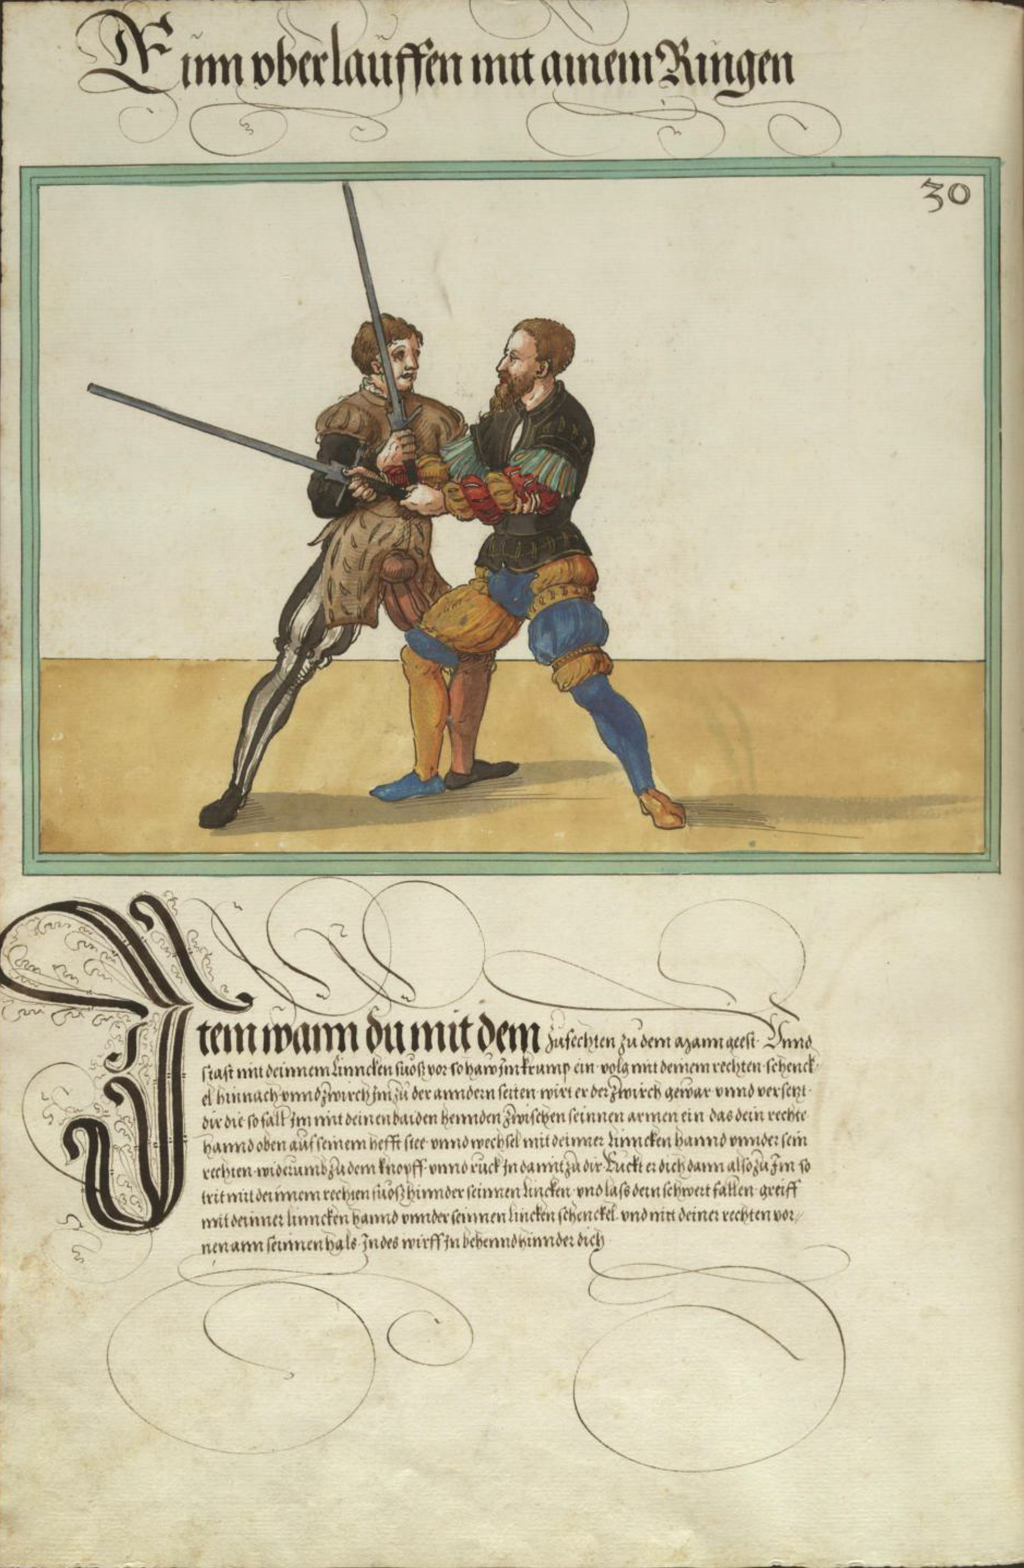 Ein vberlauffen mit ainem Ringen
30
Item wann du mit dem zufechten zu dem Mann geest. Vnnd
stast mit deinnem Linncken fuosz vor so haw jm krump ein volg mit deinem rechten schenck
el hinnach vnnd zwirch jm zu der anndern seiten wirt er der zwirch gewar vnnd versetzt
dir die so fall jm mit deinen baiden hennden zwischen seinnen armen ein das dein rechte
hannd oben auf seinem hefft stee vnnd wechsel mit deinner Linncken hannd vnnder sein
rechten widerumb zu dem knopff vnnd ruck jn damit zu dir Buckt er dich dann also zu Im so
trit mit deinnem rechten fuosz hinnder seinnen lincken vnd lass dein schwert fallen greiff
mit deinner linncken hannd vnnder seinnen lincken schenckel vnd mit deiner rechten vor
nen ann seinnen hals Indes wirff jn behennd hinnder dich